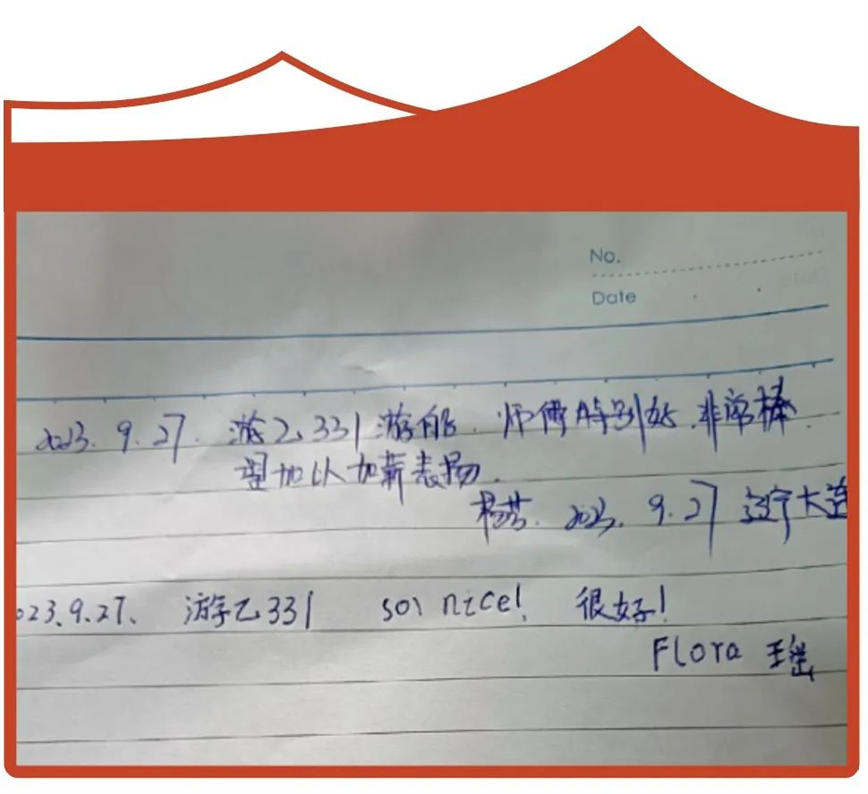 No.
Date
2023. 9. 27. 游乙331游船. 师傅特别好. 非常棒.
望加以加薪表扬.
2023. 9. 27 辽宁大连
023.9.27、 游乙331 so nice! 很好!
Flora 王瑶